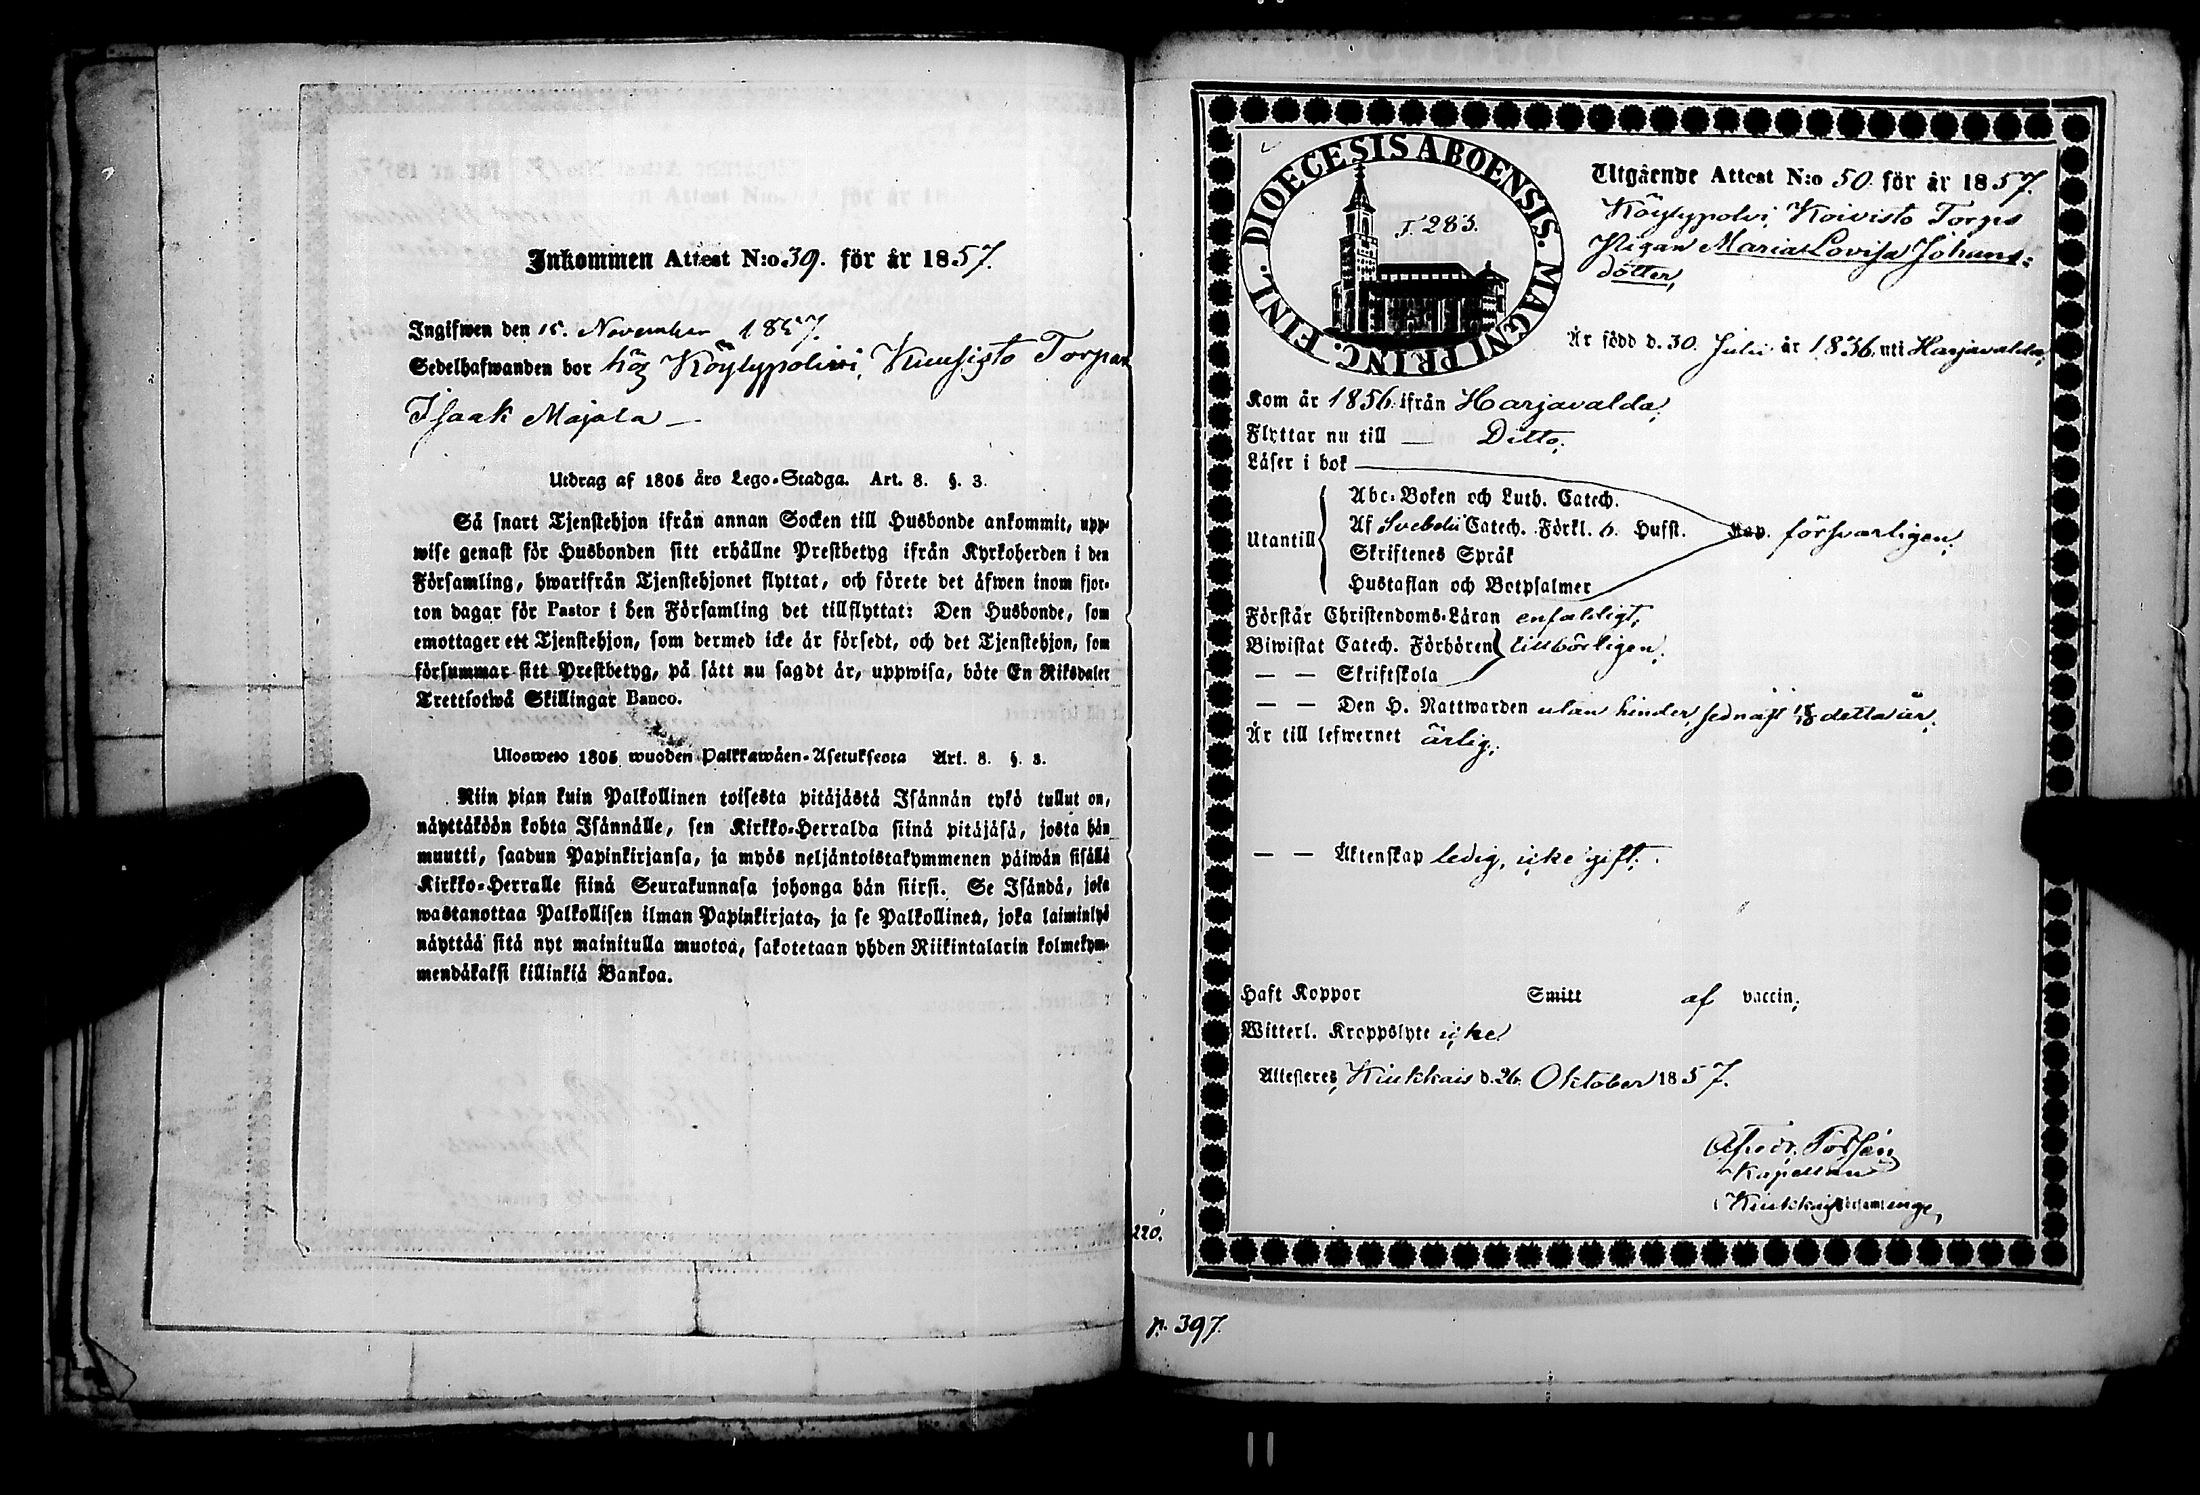 Inkommen Attest N:o 39. för år 1857.
Ingifwen den 15. November 1857.
Sedelhafwanden bor hög Köylypolwi, Kuusisto Torpar
Isaak Majala —
Utdrag af 1805 års Lego-Stadga. Art. 8. §. 3.
Så snart Tjenstehjon ifrån annan Socken till Husbonde ankommit, upp-
wise genast för Husbonden sitt erhållne Prestbetyg ifrån Kyrkoherden i den
Församling, hwarifrån Tjenstehjonet flyttat, och förete det äfwen inom fjor-
ton dagar för Pastor i den Församling det tillflyttat: Den Husbonde, som
emottager ett Tjenstehjon, som dermed icke är försedt, och det Tjenstehjon, som
försummar sitt Prestbetyg, på sätt nu sagdt är, uppwisa, böte En Riksdaler
Trettiotwå Skillingar Banco.
Uloswesto 1805 wuoden Palkkawäen-Asetuksesta Art. 8. §. 3.
Niin pian kuin Palkollinen toisesta pitäjästä Isännän tykö tullut on,
näyttäköön kohta Isännälle, sen Kirkko-Herralda siinä pitäjäsä, josta hän
muutti, saadun Papinkirjansa, ja myös neljäntoistakymmenen päiwän sisällä
Kirkko-Herralle siinä Seurakunnasa johonga hän siirsi. Se Isändä, joka
wastanottaa Palkollisen ilman Papinkirjata, ja se Palkollinen, joka laiminlyö
näyttää sitä nyt mainitulla muotoa, sakotetaan yhden Riikintalarin kolmekym-
mendäkaksi killinkiä Bankoa.
DIOECESIS ABOENSIS. MAGNI PRINC. FINL.
T. 283.
Utgående Attest N:o 50. för år 1857.
Köylypolvi, Koivisto Torps
Pigan Maria Lovisa Johans-
dotter,
Är född d. 30. Julii år 1836. uti Harjavalda,
Kom år 1856. ifrån Harjavalda,
Flyttar nu till — Ditto,
Läser i bok
Utantill
Abc-Boken och Luth. Catech.
Af Svebelii Catech. Förkl. o. Hufst.
Skriftenes Språk
Hustaflan och Botpsalmer
försvarligen,
Förstår Christendoms-Läran enfaldigt,
Biwistat Catech. Förhören tillbörligen,
— — Skriftskola
— — Den H. Nattwarden utan hinder, sednast 18/10 detta år,
Är till lefwernet ärlig,
— — Äktenskap ledig, icke gift.
Haft Koppor Smitt af vaccin,
Witterl. Kroppslyte icke
Attesteres, Kiukkais d. 26. Oktober 1857.
Kapellan
220.
p. 397.